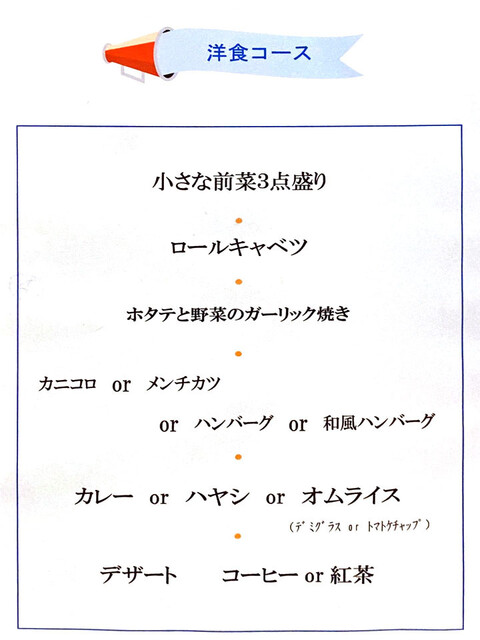 洋食コース
小さな前菜3点盛り
ロールキャベツ
ホタテと野菜のガーリック焼き
カニコロ or メンチカツ
or ハンバーグ or 和風ハンバーグ
カレー or ハヤシ or オムライス
(ﾃﾞﾐｸﾞﾗｽ or ﾄﾏﾄｹﾁｬｯﾌﾟ)
デザート コーヒー or 紅茶